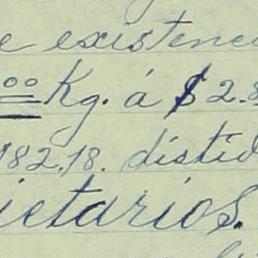 e existenc
00 Kg. á $2.8
182,18. distid
ietarios.